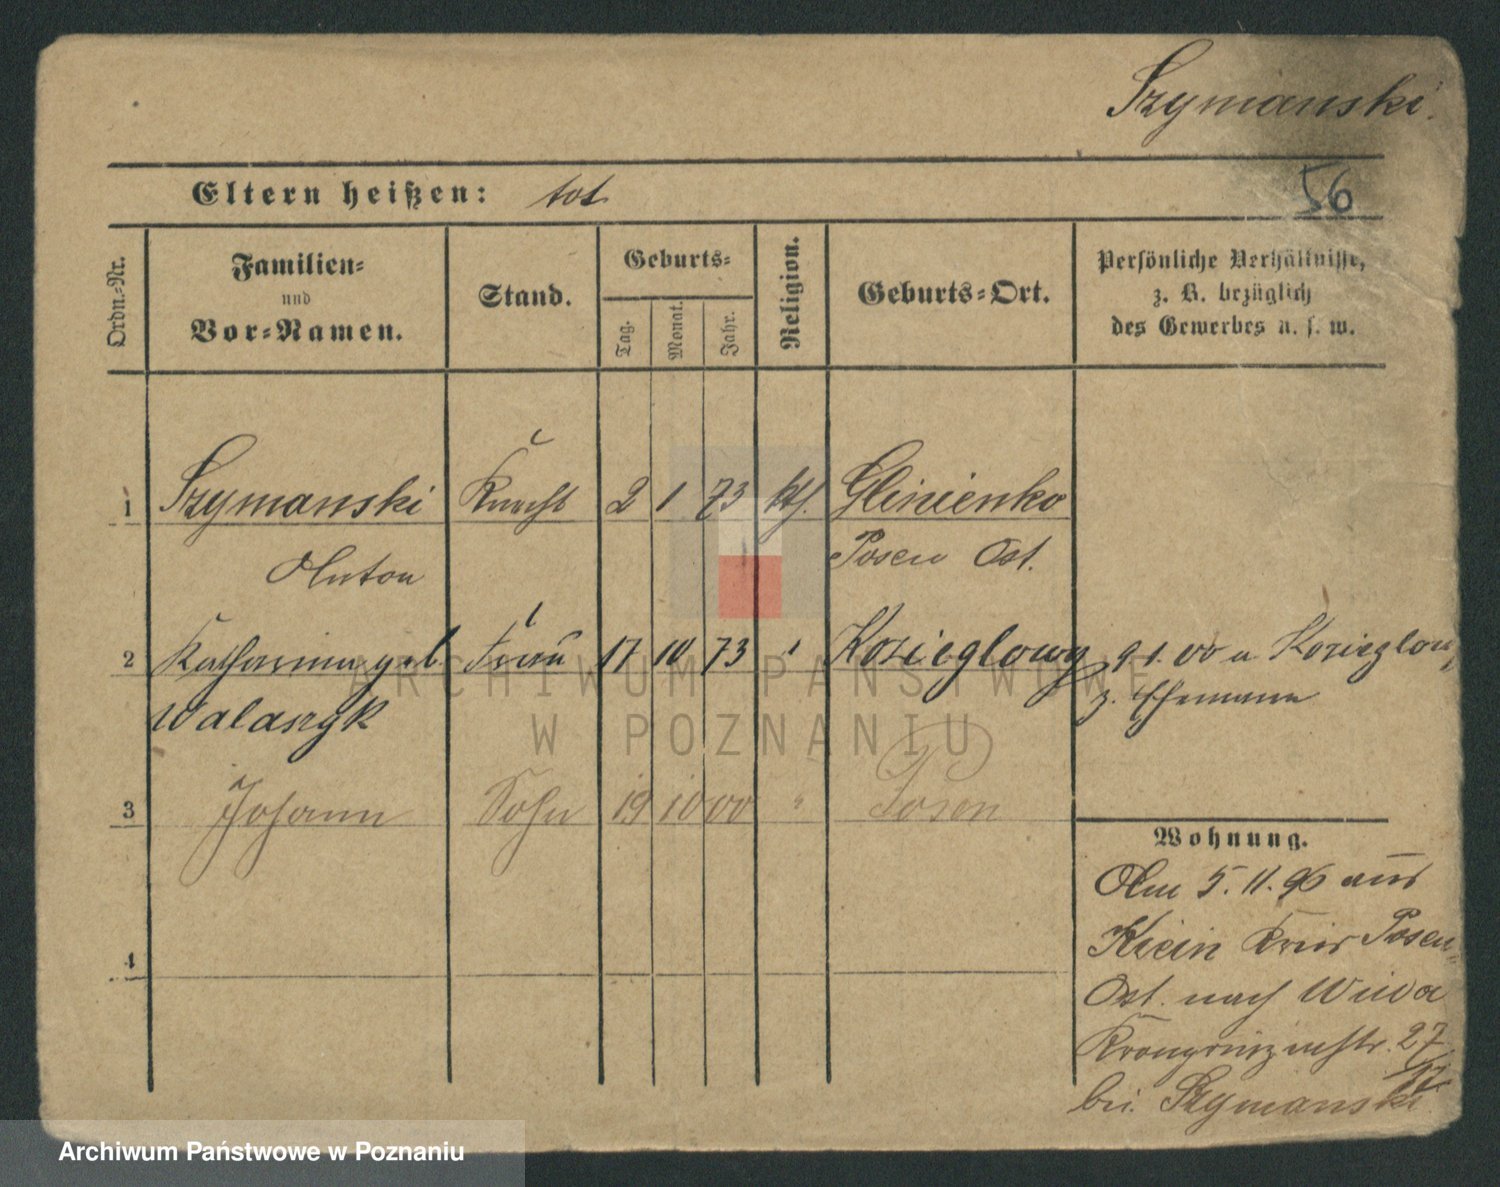 Szymanski.
56
Eltern heißen: tot
Ordn.-Nr.
Familien-
und
Vor-Namen.
Stand.
Geburts-
Tag.
Monat.
Jahr.
Religion.
Geburts-Ort.
Persönliche Verhältnisse,
z. B. bezüglich
des Gewerbes u. s. w.
1 Szymanski Knecht 2 1 73 kth. Glinienko
Anton Posen Ost.
2 Katharina geb. Frau 17 10 73 " Kozieglowy 9 1. 00 v. Kozieglow
Walaszyk z. Ehemann
3 Johann Sohn 19 10 00 " Posen
4
Wohnung.
Am 5. 11. 96 aus
Kreis Posen
Ost. nach Wilda
Kronprinzenstr. 27
bei Szymanski
ARCHIWUM PAŃSTWOWE
W POZNANIU
Archiwum Państwowe w Poznaniu